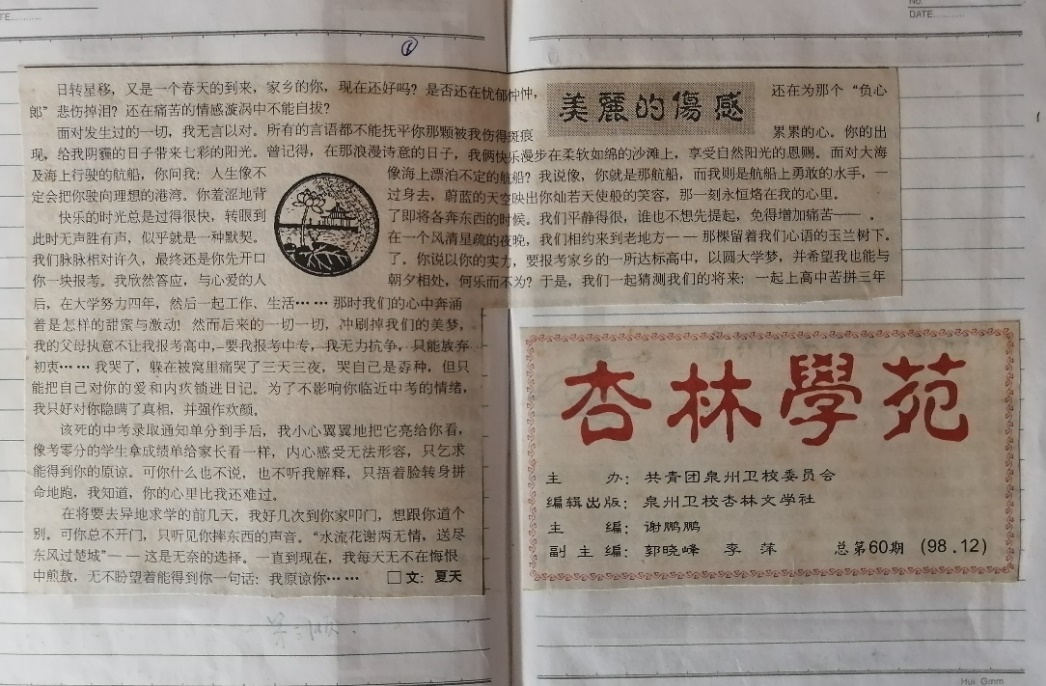 NO.
DATE
①
美麗的傷感
日转星移，又是一个春天的到来，家乡的你，现在还好吗？是否还在忧郁忡忡，还在为那个“负心
郎”悲伤掉泪？还在痛苦的情感漩涡中不能自拔？
面对发生过的一切，我无言以对。所有的言语都不能抚平你那颗被我伤得斑痕累累的心。你的出
现，给我阴霾的日子带来七彩的阳光。曾记得，在那浪漫诗意的日子，我俩快乐漫步在柔软如绵的沙滩上，享受自然阳光的恩赐。面对大海
及海上行驶的航船，你问我：人生像不像海上漂泊不定的航船？我说像，你就是那航船，而我则是航船上勇敢的水手，一
定会把你驶向理想的港湾。你羞涩地背过身去，蔚蓝的天空映出你灿若天使般的笑容，那一刻永恒烙在我的心里。
快乐的时光总是过得很快，转眼到了即将各奔东西的时候。我们平静得很，谁也不想先提起，免得增加痛苦——．
此时无声胜有声，似乎就是一种默契。在一个风清星疏的夜晚，我们相约来到老地方——那棵留着我们心语的玉兰树下．
我们脉脉相对许久，最终还是你先开口了。你说以你的实力，要报考家乡的一所达标高中，以圆大学梦，并希望我也能与
你一块报考。我欣然答应，与心爱的人朝夕相处，何乐而不为？于是，我们一起猜测我们的将来：一起上高中苦拼三年
后，在大学努力四年，然后一起工作、生活……那时我们的心中奔涌
着是怎样的甜蜜与激动！然而后来的一切一切，冲刷掉我们的美梦，
我的父母执意不让我报考高中，要我报考中专，我无力抗争，只能放弃
初衷……我哭了，躲在被窝里痛哭了三天三夜，哭自己是孬种，但只
能把自己对你的爱和内疚锁进日记。为了不影响你临近中考的情绪，
我只好对你隐瞒了真相，并强作欢颜。
该死的中考录取通知单分到手后，我小心翼翼地把它亮给你看，
像考零分的学生拿成绩单给家长看一样，内心感受无法形容，只乞求
能得到你的原谅。可你什么也不说，也不听我解释，只捂着脸转身拼
命地跑，我知道，你的心里比我还难过。
在将要去异地求学的前几天，我好几次到你家叩门，想跟你道个
别。可你总不开门，只听见你摔东西的声音。“水流花谢两无情，送尽
东风过楚城”——这是无奈的选择。一直到现在，我每天无不在悔恨
中煎熬，无不盼望着能得到你一句话：我原谅你……　□文：夏天
杏林學苑
主　　办：共青团泉州卫校委员会
编辑出版：泉州卫校杏林文学社
主　　编：谢鹏鹏
副 主 编：郭晓峰　李 萍　总第60期　(98.12)